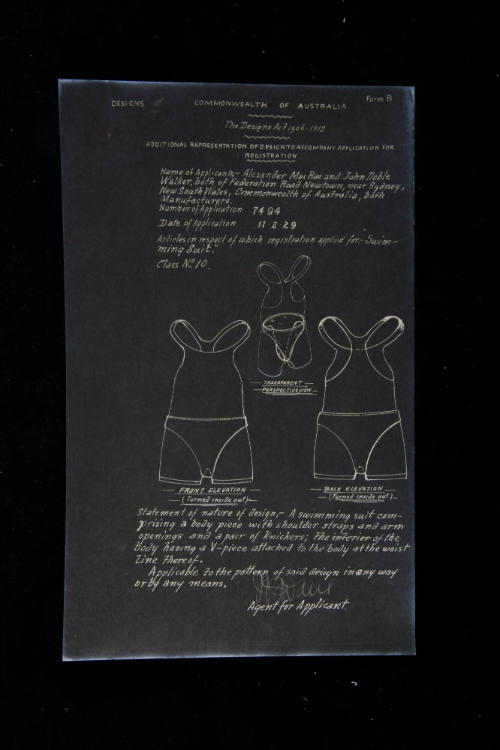 DESIGNS
COMMONWEALTH OF AUSTRALIA
Form B
The Designs Act 1906-1912
ADDITIONAL REPRESENTATION OF DESIGN TO ACCOMPANY APPLICATION FOR
REGISTRATION
Name of Applicants,- Alexander MacRae and John Noble
Walker, both of Federation Road Newtown, near Sydney,
New South Wales, Commonwealth of Australia, both
Manufacturers.
Number of Application 7494
Date of Application 11-2-29
Articles in respect of which registration applied for:- "Swim-
ming Suit."
Class No 10.
TRANSPARENT
PERSPECTIVE VIEW
FRONT ELEVATION
(Turned inside out)
BACK ELEVATION
(Turned inside out)
Statement of nature of design,- A swimming suit com-
prising a body piece with shoulder straps and arm
openings and a pair of knickers; the interior of the
body having a V-piece attached to the body at the waist
line thereof.
Applicable to the pattern of said design in any way
or by any means.
Agent for Applicant